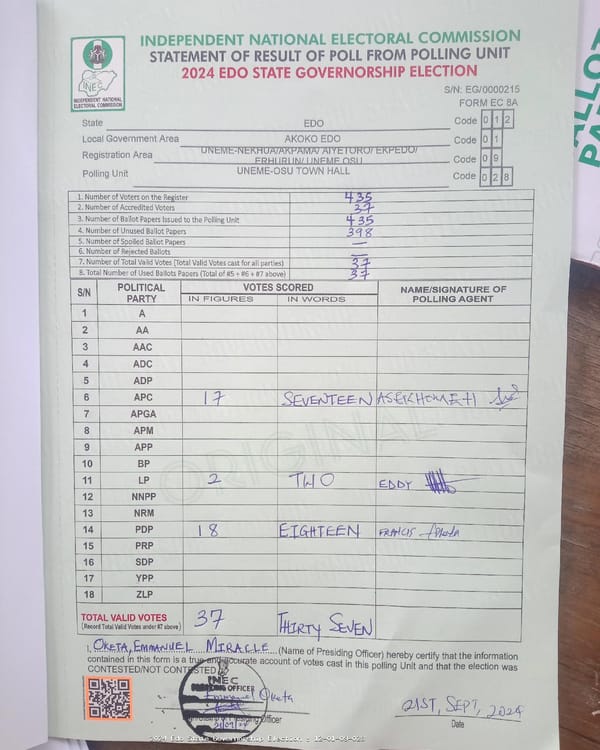 INDEPENDENT NATIONAL ELECTORAL COMMISSION
STATEMENT OF RESULT OF POLL FROM POLLING UNIT
2024 EDO STATE GOVERNORSHIP ELECTION
INEC
INDEPENDENT NATIONAL
ELECTORAL COMMISSION
S/N: EG/0000215
FORM EC 8A
State EDO Code 0 1 2
Local Government Area AKOKO EDO Code 0 1
Registration Area UNEME-NEKHUA/AKPAMA/ AIYETORO/ EKPEDO/
ERHURUN/ UNEME OSU Code 0 9
Polling Unit UNEME-OSU TOWN HALL Code 0 2 8
1. Number of Voters on the Register 435
2. Number of Accredited Voters 37
3. Number of Ballot Papers Issued to the Polling Unit 435
4. Number of Unused Ballot Papers 398
5. Number of Spoiled Ballot Papers —
6. Number of Rejected Ballots —
7. Number of Total Valid Votes (Total Valid Votes cast for all parties) 37
8. Total Number of Used Ballots Papers (Total of #5 + #6 + #7 above) 37
S/N POLITICAL PARTY VOTES SCORED NAME/SIGNATURE OF POLLING AGENT
IN FIGURES IN WORDS
1 A
2 AA
3 AAC
4 ADC
5 ADP
6 APC 17 SEVENTEEN
7 APGA
8 APM
9 APP
10 BP
11 LP 2 TWO EDDY
12 NNPP
13 NRM
14 PDP 18 EIGHTEEN FRANCIS
15 PRP
16 SDP
17 YPP
18 ZLP
ORIGINAL
TOTAL VALID VOTES 37 THIRTY SEVEN
(Record Total Valid Votes under #7 above)
I, OKETA, EMMANUEL MIRACLE (Name of Presiding Officer) hereby certify that the information
contained in this form is a true and accurate account of votes cast in this polling Unit and that the election was
CONTESTED/NOT CONTESTED
INEC
PRESIDING OFFICER
Emmanuel Oketa
21/09/24
Officer
21ST, SEPT, 2024
Date
2024 Edo State Governorship Election - 12-01-09-028
BALLOT
PA